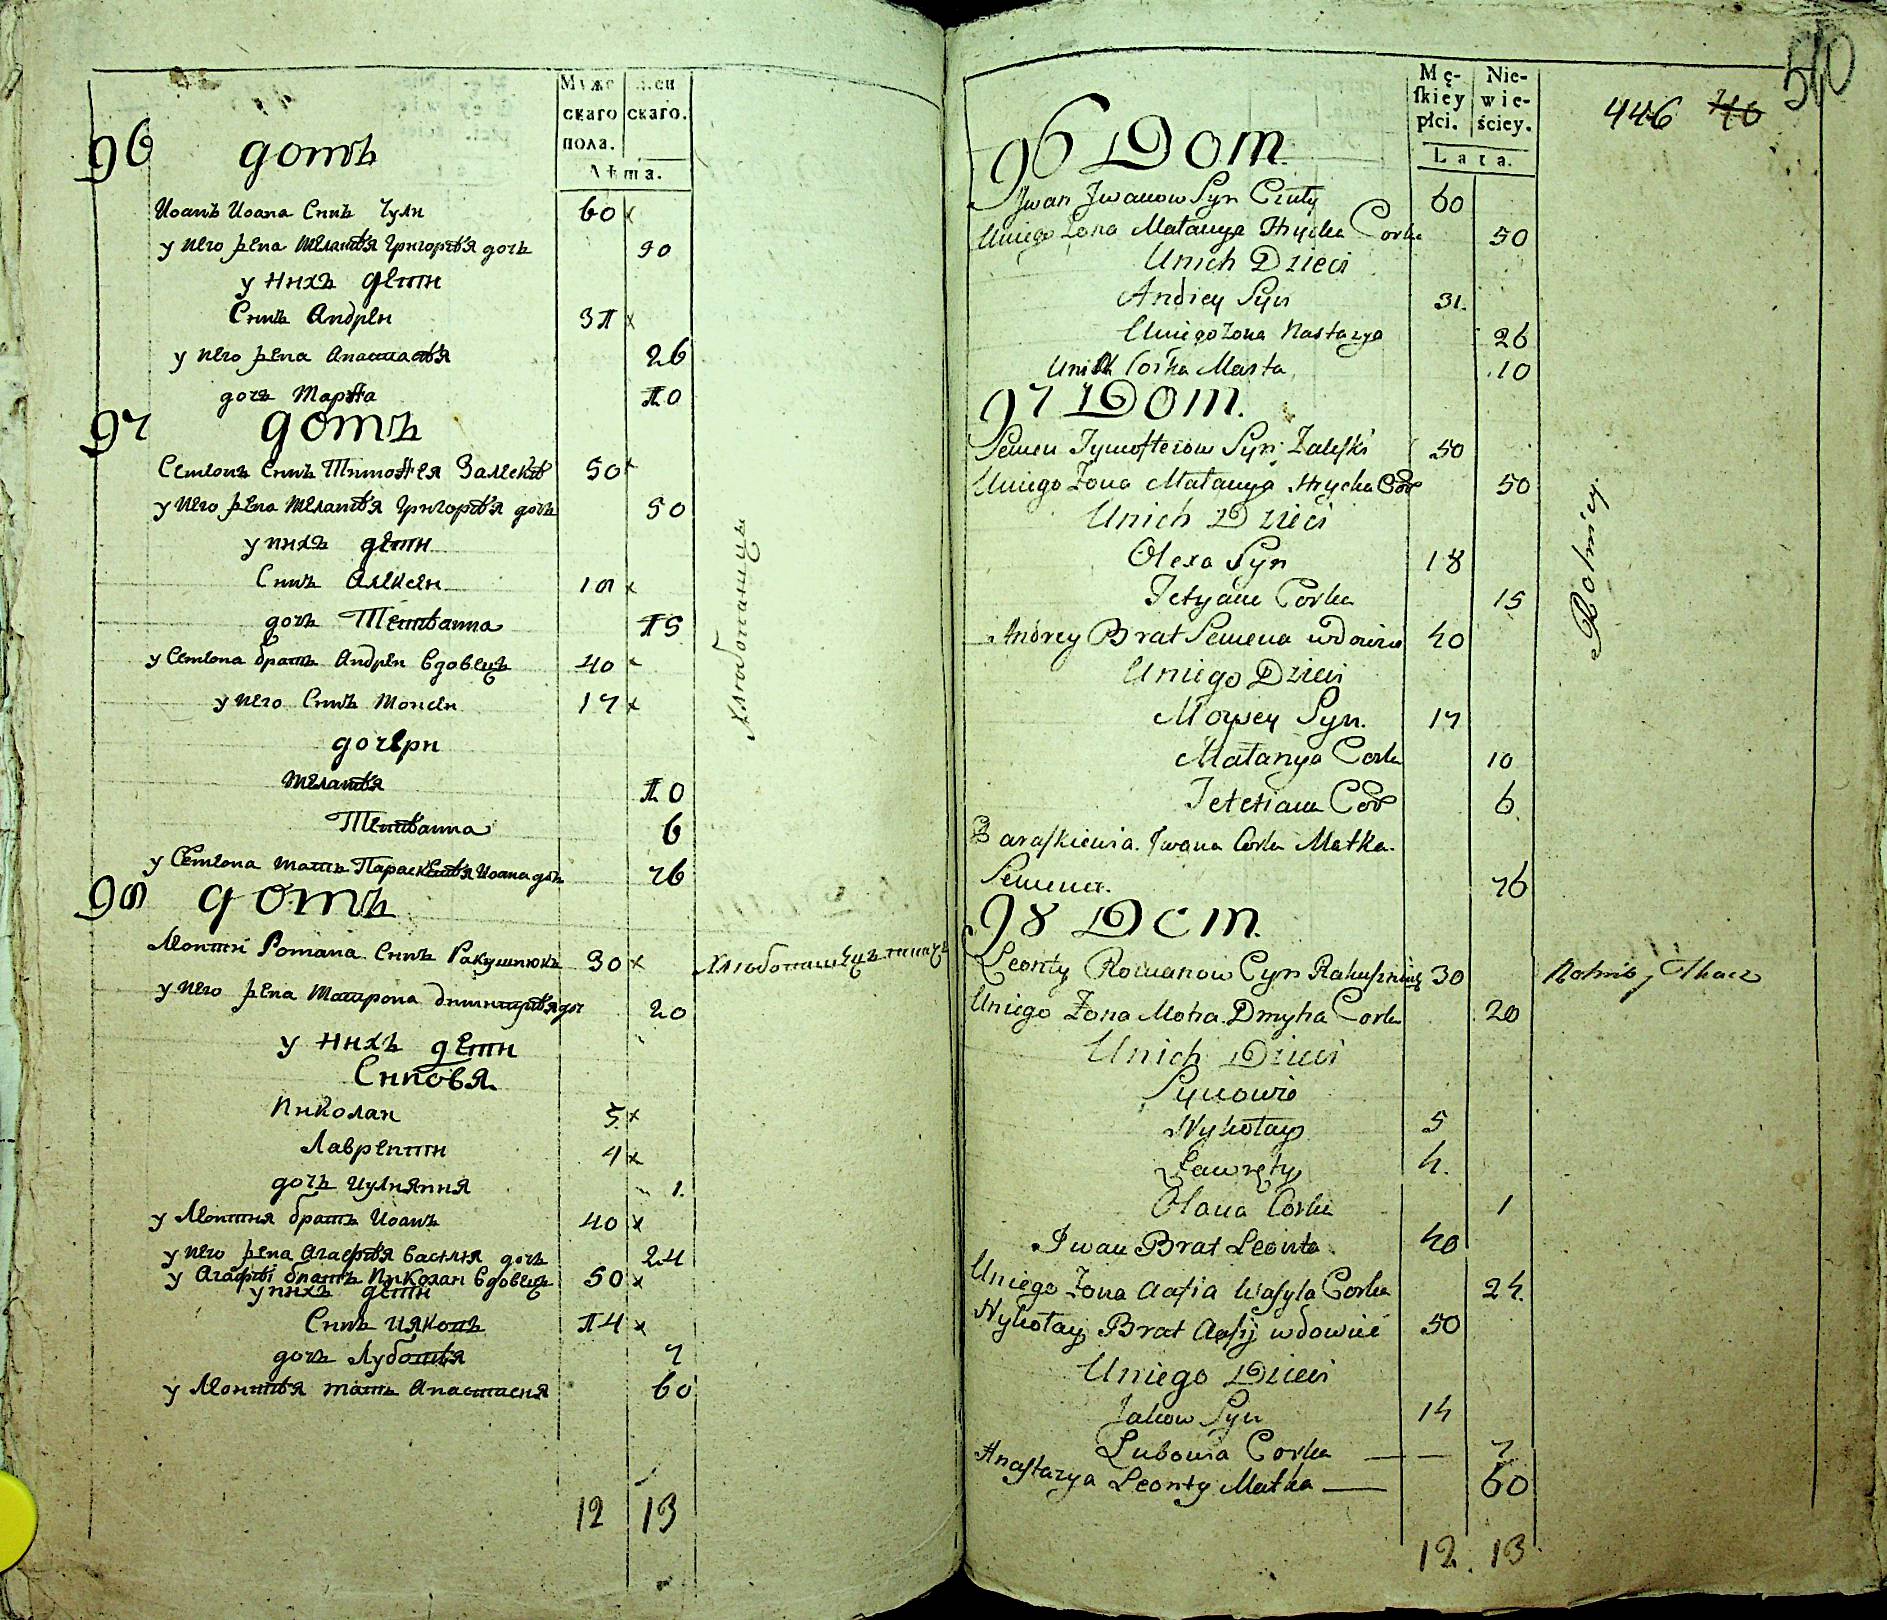 Муже
скаго
пола.
жен
скаго.
Лѣта.
96 домъ
Иоанъ Иоана Снъ Чули 60 x
у него жена Меланія Григорія дочъ 50
у нихъ дети
Снъ Андреи 31 x
у него жена Анастасія 26
дочъ Марѳа 10
97 домъ
Семіонъ Снъ Тимоѳея Залескі 50 x
у него жена Меланія Григорія дочъ 50
у нихъ дети
Снъ Алексеи 18 x
дочъ Тетіанна 15
у Семіона братъ Андреи вдовецъ 40 x
у него Снъ Моисеи 17 x
дочери
Меланія 10
Тетіанна 6
у Семіона мать Параскевія Иоана дочъ 76
Хлѣбопашцы
98 домъ
Леонтиі Романа Снъ Ракушнюкъ 30 x
Хлѣбопашецъ ткачъ
у него жена Матрона Димитрія доч 20
у нихъ дети
Сыновя
Николаи 5 x
Лаврентии 4 x
дочъ Иулияния 1.
у Леонтия братъ Иоанъ 40 x
у него жена Агафія Василия дочъ 24
у Агафіі братъ Николаи вдовецъ 50 x
у нихъ дети
Снъ Ияковъ 14 x
дочъ Лубовія 7
у Леонтія мать Анастасия 60
12 13
Mę-
ſkiey
płci.
Nie-
wie-
ściey.
Lata.
446 46
510
96 Dom.
Jwan Jwanow Syn Czuły 60
Uniego Zona Małanya Hrycka Corka 50
Unich Dzieci
Andrey Syn 31.
Uniego Zona Nastazya 26
Unich Corka Marta 10
97 Dom.
Semen Tymofteiow Syn Zaleski 50
Uniego Zona Małanya Hrycka Cor 50
Unich Dzieci
Olexa Syn 18
Tetyana Corka 15
Andrey Brat Semena wdowiec 40
Uniego Dzieci
Moysey Syn. 17
Małanya Corka 10
Tetetiana Cor 6
Paraſkiewia Jwana Corka Matka
Semena. 76
Rolnicy.
98 Dom.
Leonty Romanow Syn Rakuſzniuk 30
Rolnik, Tkacz
Uniego Zona Motra Dmytra Corka 20
Unich Dzieci
Synowie
Nykołay 5
Ławręty 4.
Olana Corka 1
Jwan Brat Leonta 40
Uniego Zona Aafia Waſyla Corka 24.
Nykołay Brat Aafij wdowiec 50
Uniego Dzieci
Jakow Syn 14
Lubowia Corka — — 7
Anaſtazya Leonty Matka — 60
12. 13